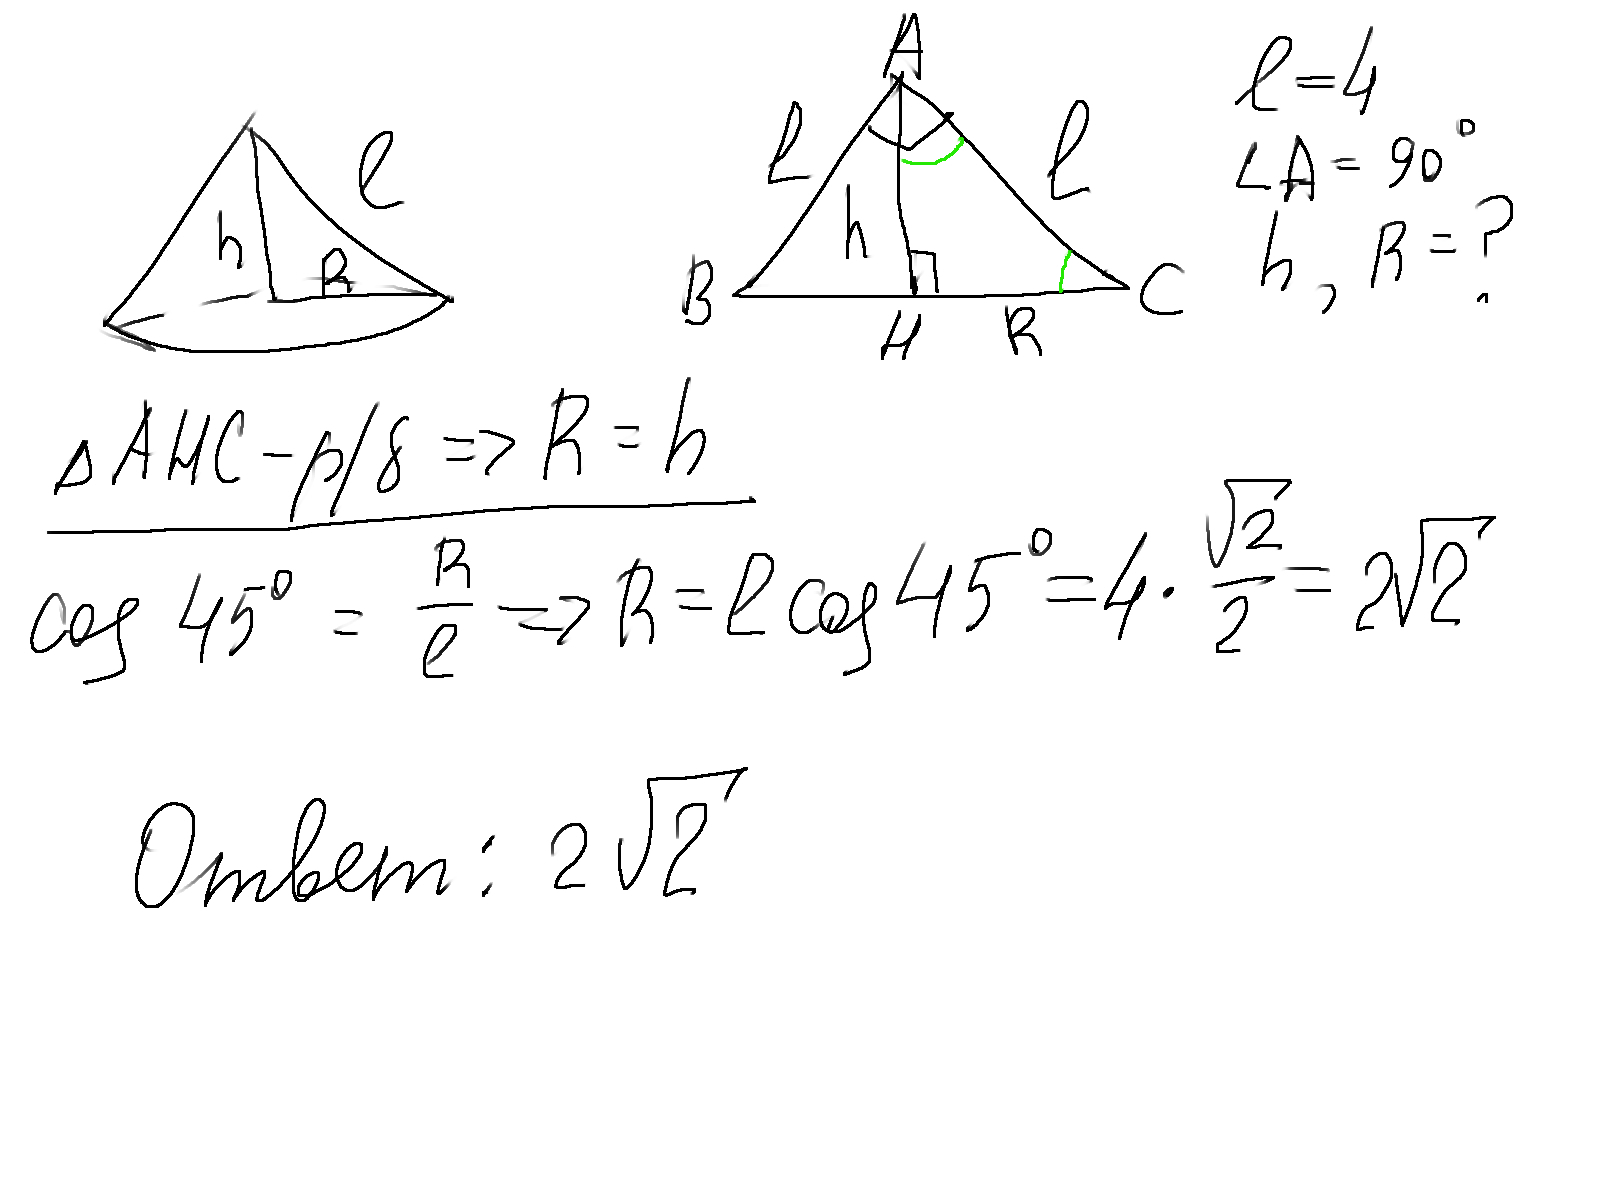 l
h
R
A
l
l
h
B
C
H
R
l = 4
∠A = 90°
h, R = ?
△AHC - р/б => R = h
cos 45° = R/l => R = l cos 45° = 4 · √2/2 = 2√2
Ответ: 2√2